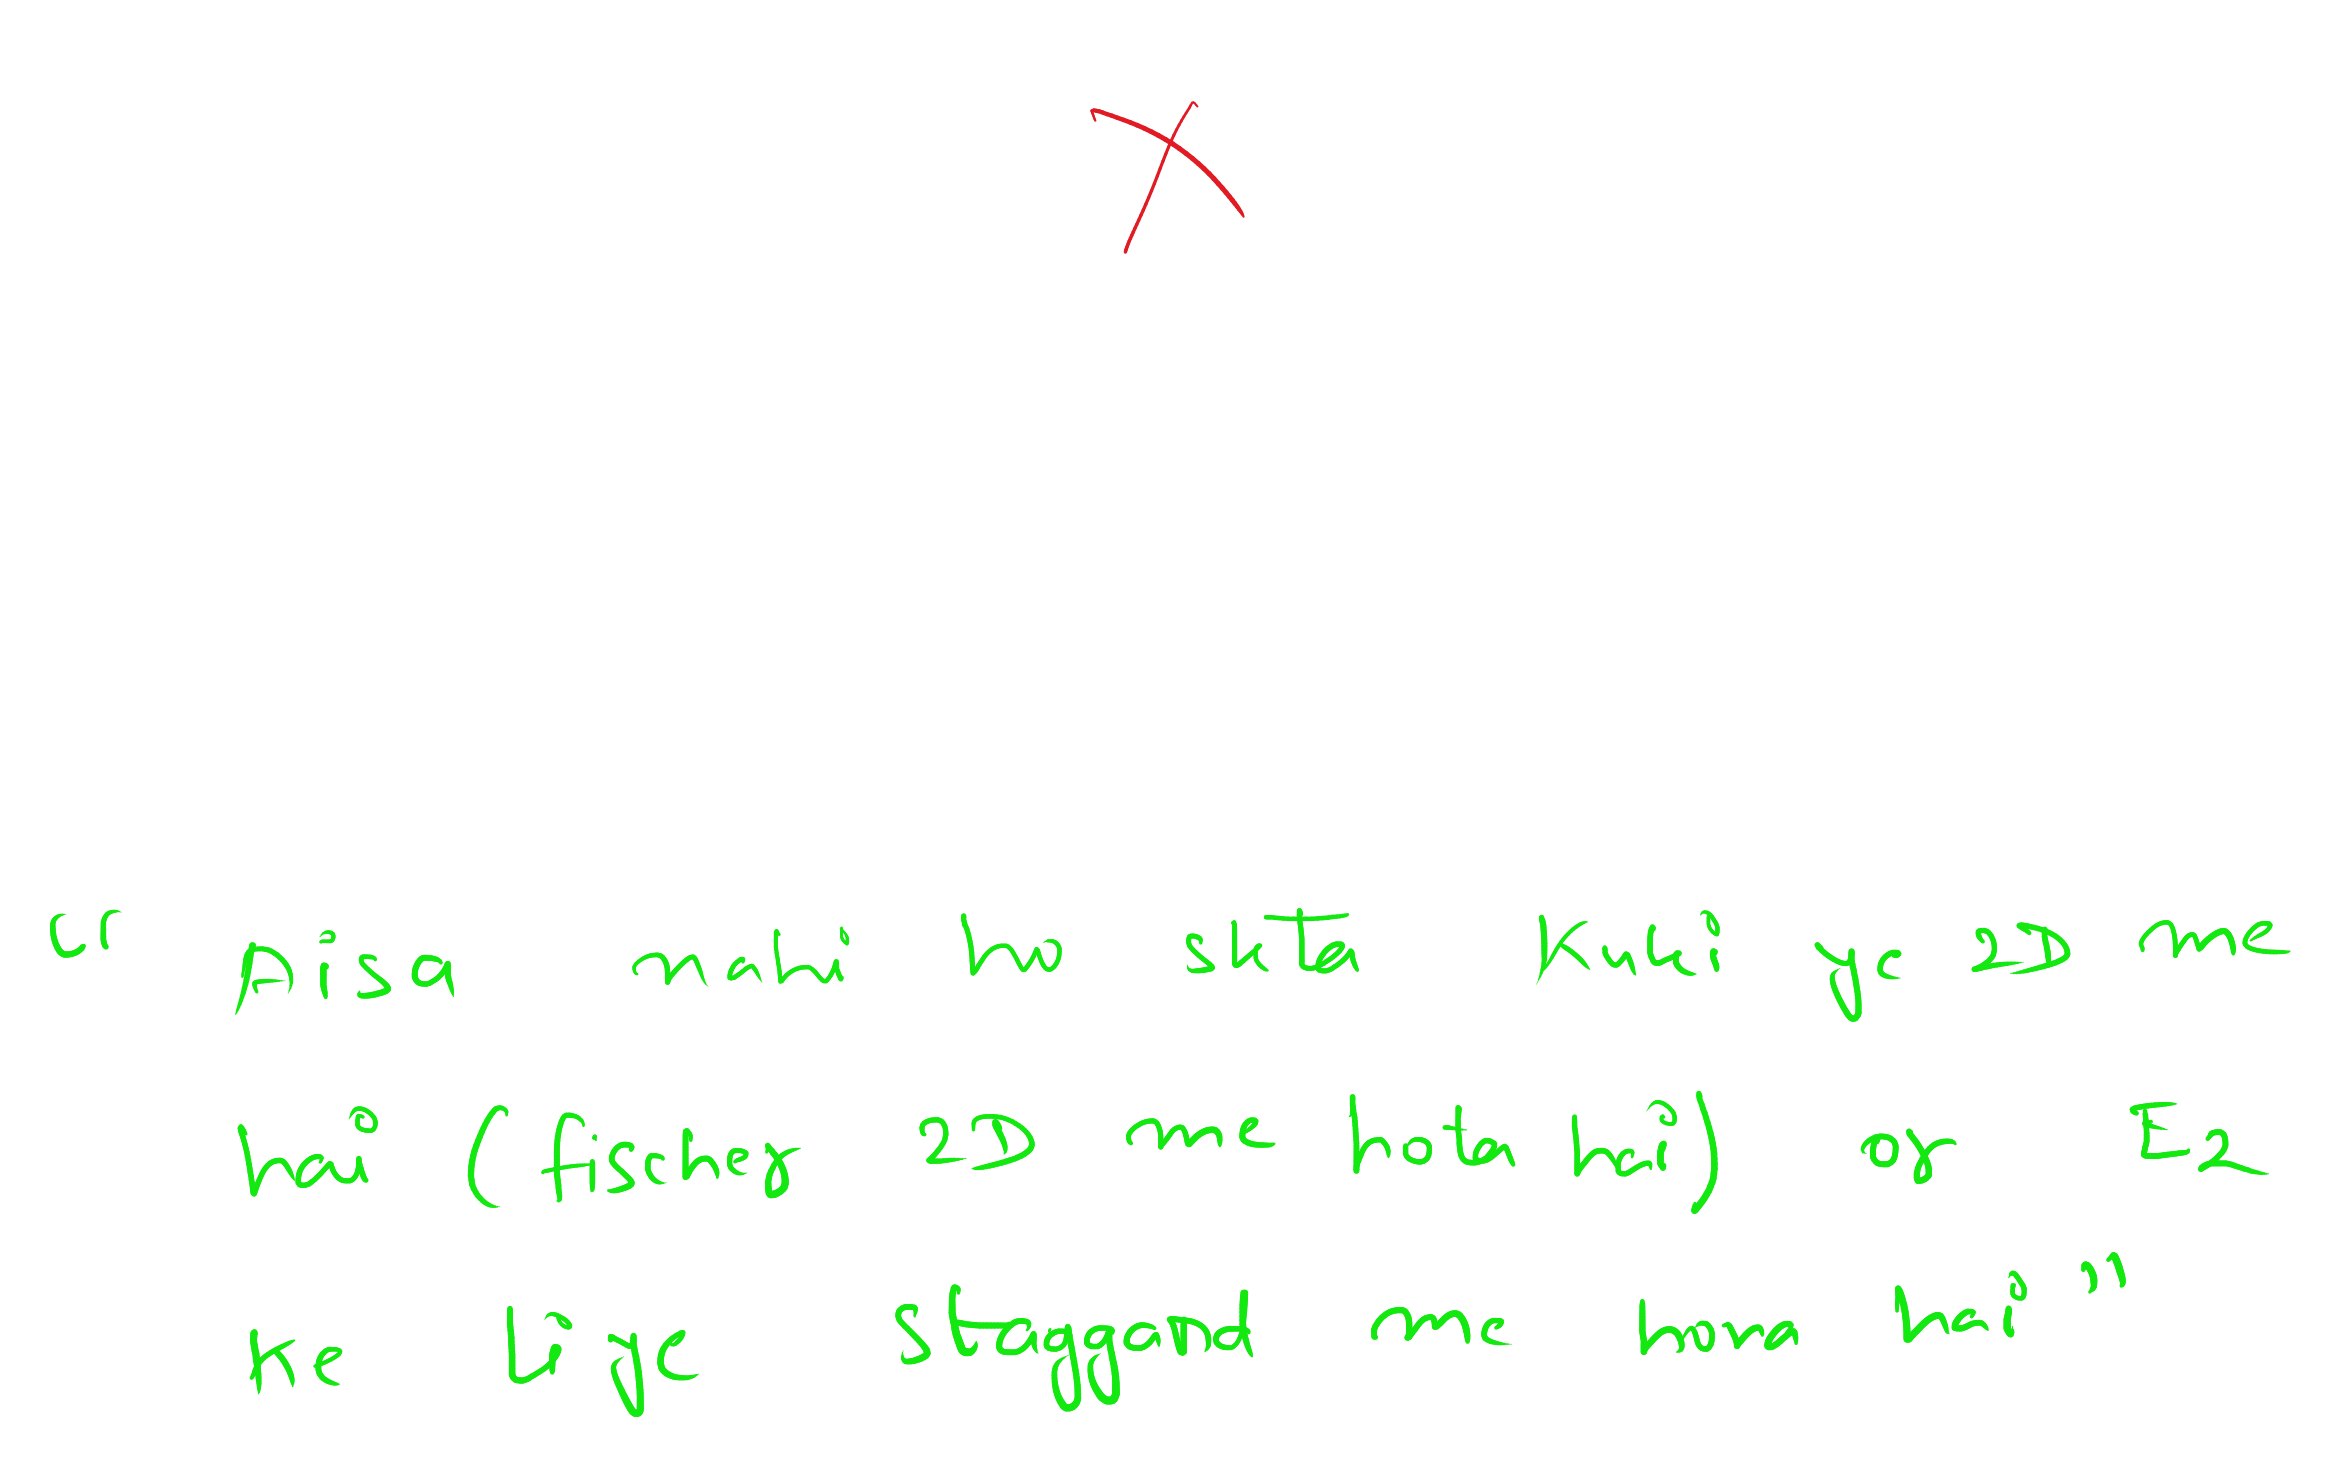 " Aisa nahi ho skta Kuki ye 2D me
hai (fischer 2D me hota hai) or E2
ke liye staggard me hona hai "